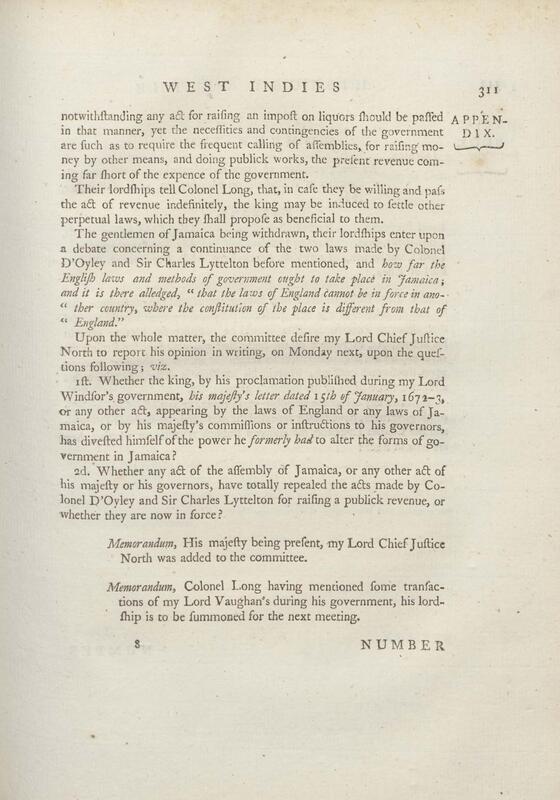 WEST INDIES 311
notwithſtanding any act for raiſing an impoſt on liquors ſhould be paſſed
in that manner, yet the neceſſities and contingencies of the government
are ſuch as to require the frequent calling of aſſemblies, for raiſing mo-
ney by other means, and doing publick works, the preſent revenue com-
ing far ſhort of the expence of the government.
APPEN-
DIX.
Their lordſhips tell Colonel Long, that, in caſe they be willing and paſs
the act of revenue indefinitely, the king may be induced to ſettle other
perpetual laws, which they ſhall propoſe as beneficial to them.
The gentlemen of Jamaica being withdrawn, their lordſhips enter upon
a debate concerning a continuance of the two laws made by Colonel
D'Oyley and Sir Charles Lyttelton before mentioned, and how far the
Engliſh laws and methods of government ought to take place in Jamaica;
and it is there alledged, "that the laws of England cannot be in force in ano-
"ther country, where the conſtitution of the place is different from that of
"England."
Upon the whole matter, the committee deſire my Lord Chief Juſtice
North to report his opinion in writing, on Monday next, upon the queſ-
tions following; viz.
1ſt. Whether the king, by his proclamation publiſhed during my Lord
Windſor's government, his majeſty's letter dated 15th of January, 1672-3,
or any other act, appearing by the laws of England or any laws of Ja-
maica, or by his majeſty's commiſſions or inſtructions to his governors,
has diveſted himſelf of the power he formerly had to alter the forms of go-
vernment in Jamaica?
2d. Whether any act of the aſſembly of Jamaica, or any other act of
his majeſty or his governors, have totally repealed the acts made by Co-
lonel D'Oyley and Sir Charles Lyttelton for raiſing a publick revenue, or
whether they are now in force?
Memorandum, His majeſty being preſent, my Lord Chief Juſtice
North was added to the committee.
Memorandum, Colonel Long having mentioned ſome tranſac-
tions of my Lord Vaughan's during his government, his lord-
ſhip is to be ſummoned for the next meeting.
8 NUMBER